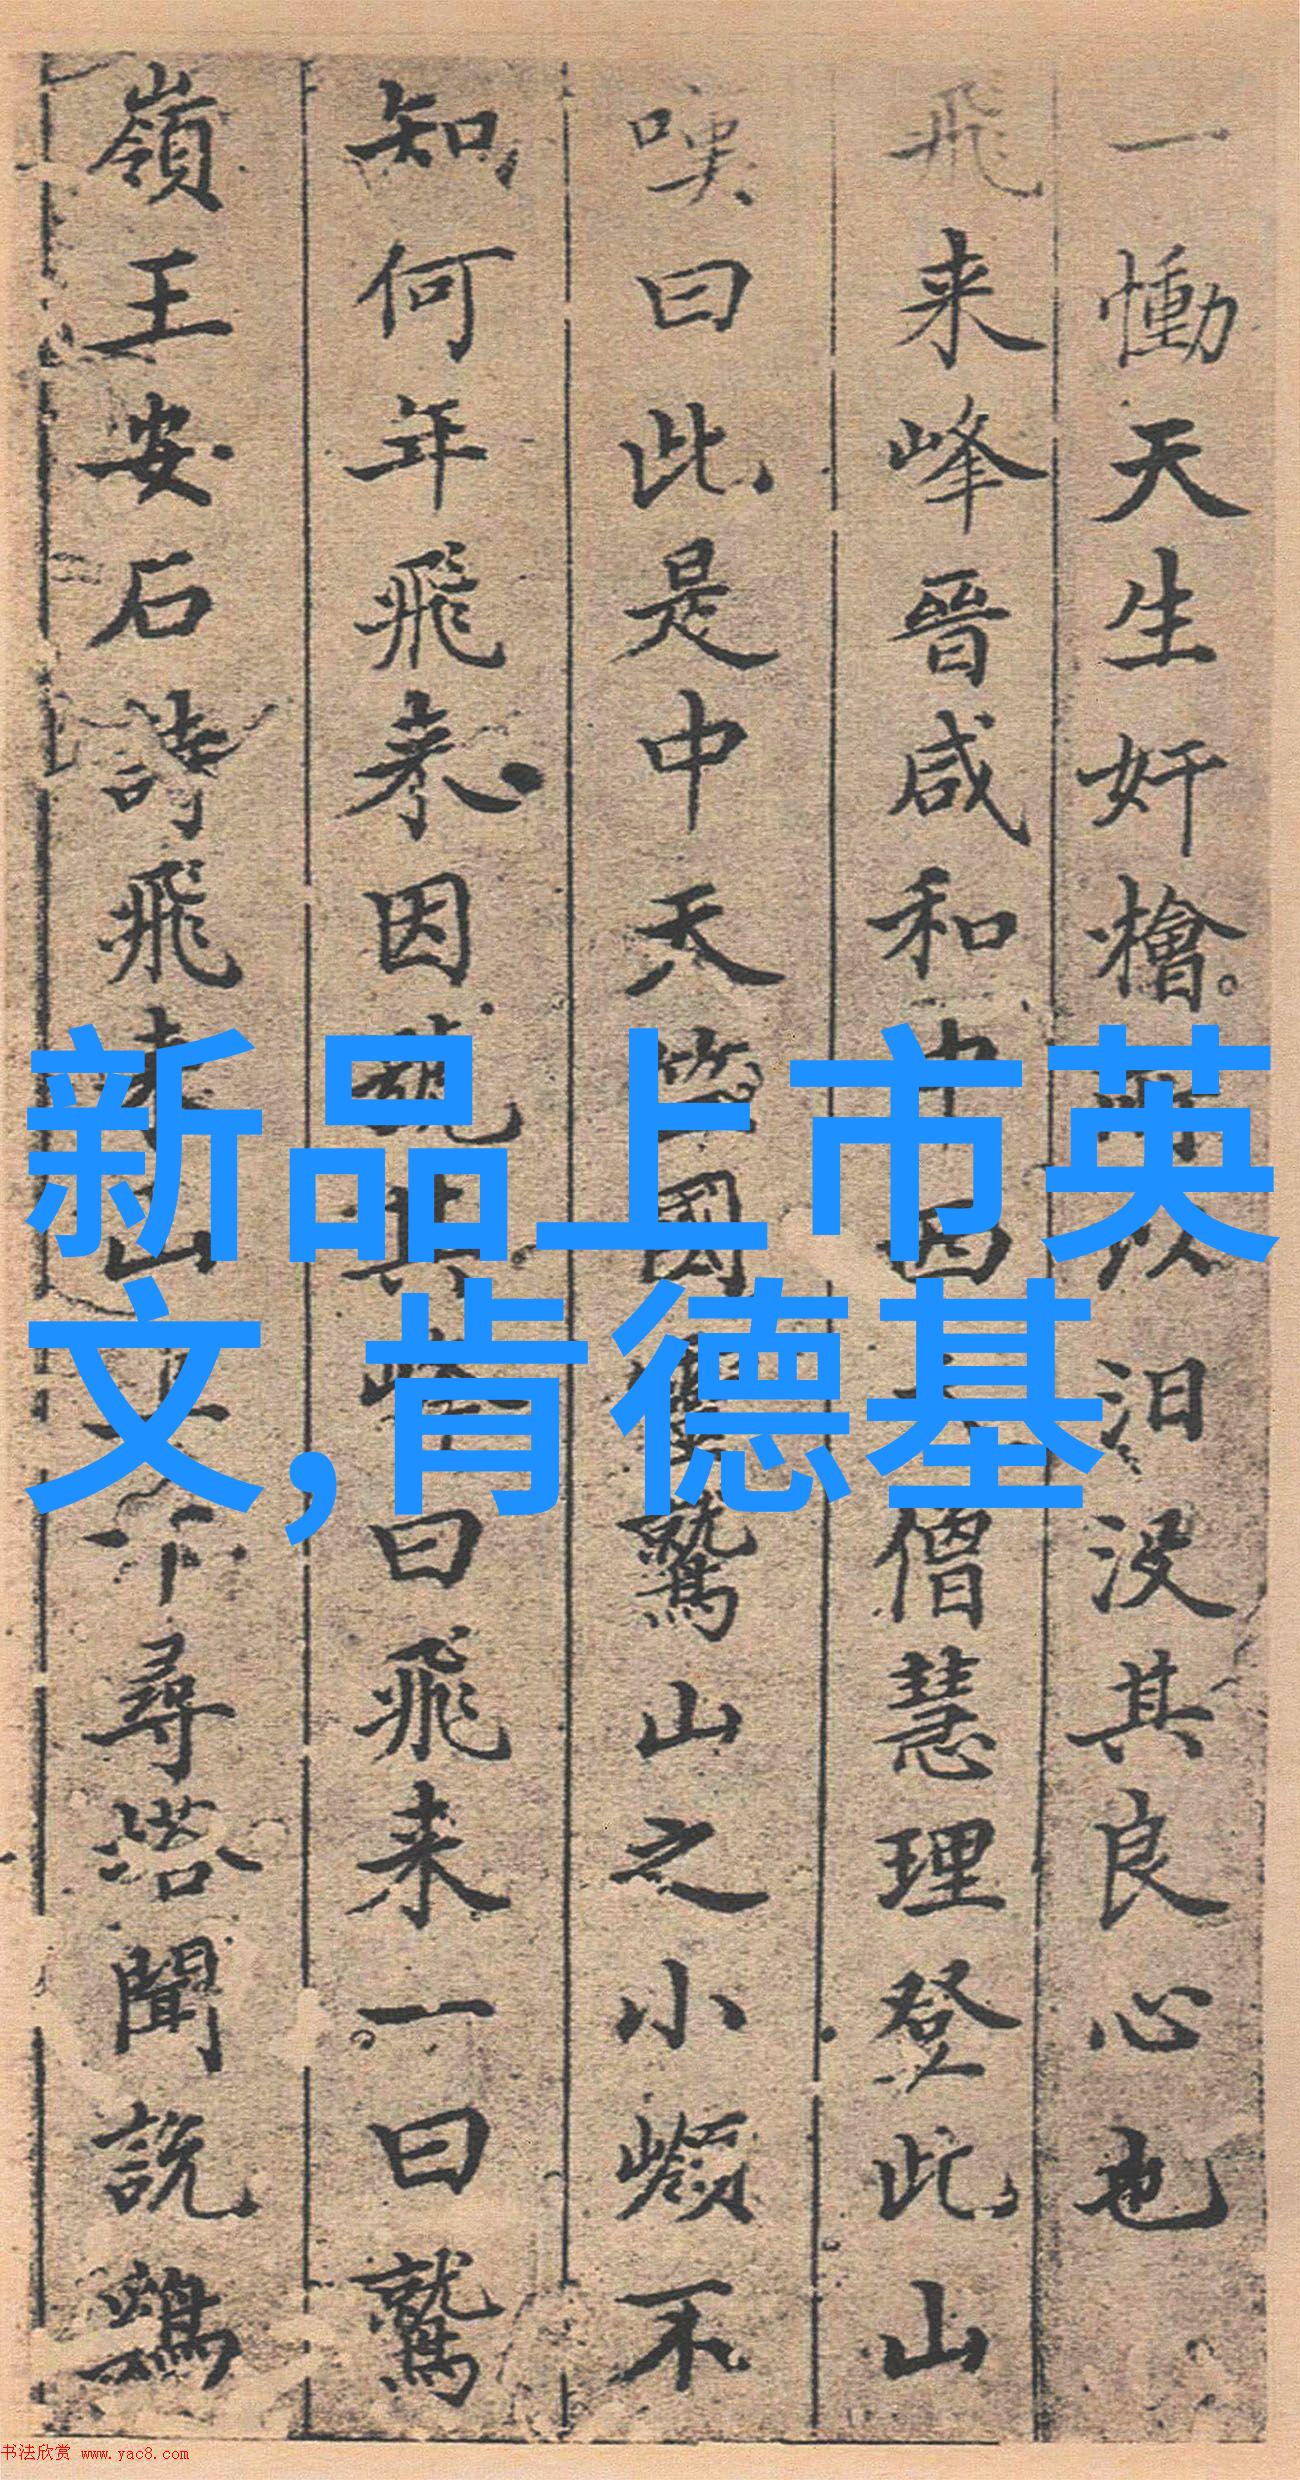 一慟天生奸檜所以汨没其良心也
飛来峰晉咸和中西僧慧理登此山
嘆曰此是中天竺國靈鷲山之小嶺不
知何年飛来因號其峰曰飛来一曰鷲
嶺王安石詩飛来山上千尋塔聞說鷄
新品上市英
文,肯德基
书法欣赏 www.yac8.com